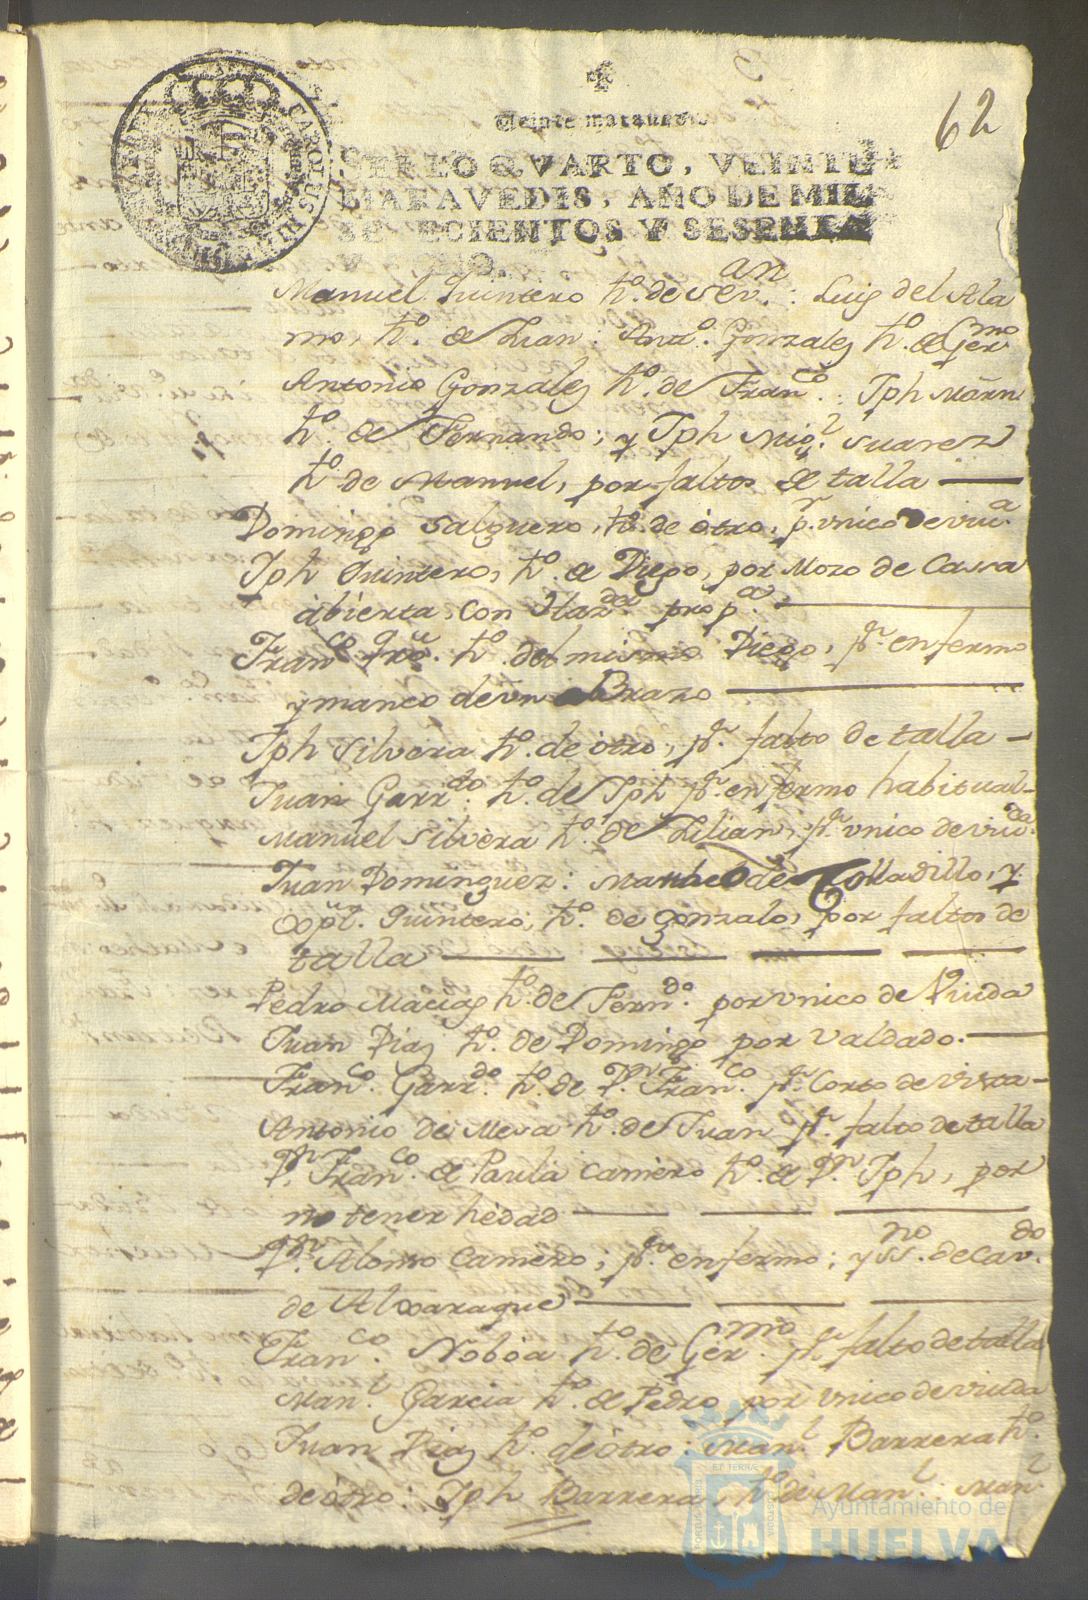 62
Veinte maravedis.
SELLO QVARTO, VEINTE
MARAVEDIS, AÑO DE MIL
SETECIENTOS Y SESENTA
Y OCHO.
Manuel Quintero hº. de Sevan.: Luis del Ala
mo, hº. de Lian: Antº. Gonzalez hº. de Germo
Antonio Gonzalez hº. de Franco.: Jph Marn
hº. de Fernando; y Jph Migl. Suarez
hº de Manuel, por faltos de talla
Domingo Salguero, hº. de òtro, pr. vnico de viua.
Jph Quintero, hº. de Diego, por Mozo de Cassa
àbierta, con propa.
Franco. Qro. hº. del mismo Diego, pr. enfermo
y manco de vn Brazo
Jph Silvera hº. de òtro, pr. falto de talla
Juan Garrdo. hº. de Jph pr. enfermo habitual
Manuel Silvèra hº. de Lilian, pr. vnico de viuda.
Juan Dominguez: Manuel de Tolladillo, y
Xpl. Quintero, hº. de Gonzalo, por faltos de
talla
Pedro Macias hº. de Ferndo. por vnico de Viuda
Juan Diaz hº. de Domingo por valdado.
Franco. Garrdo. hº. de Dn. Franco. pr. Corto de vista
Antonio de Mesa hº. de Juan pr. falto de talla
Dn. Franco. de Paula Camèro hº. de Dn. Jph, por
no tener hèdad
Dn. Alonso Camero; pr. enfermo; y ssno. de Cavdo.
de Alxaraque
Franco. Nobòa hº. de Germo. pr. falto de talla
Manl. Garcia hº. de Pedro por vnico de viuda
Juan Diaz hº. de òtro: Manl. Barrera hº.
de òtro: Jph Barrera, hº. de Manl.: Manl.
Ayuntamiento de
HUELVA